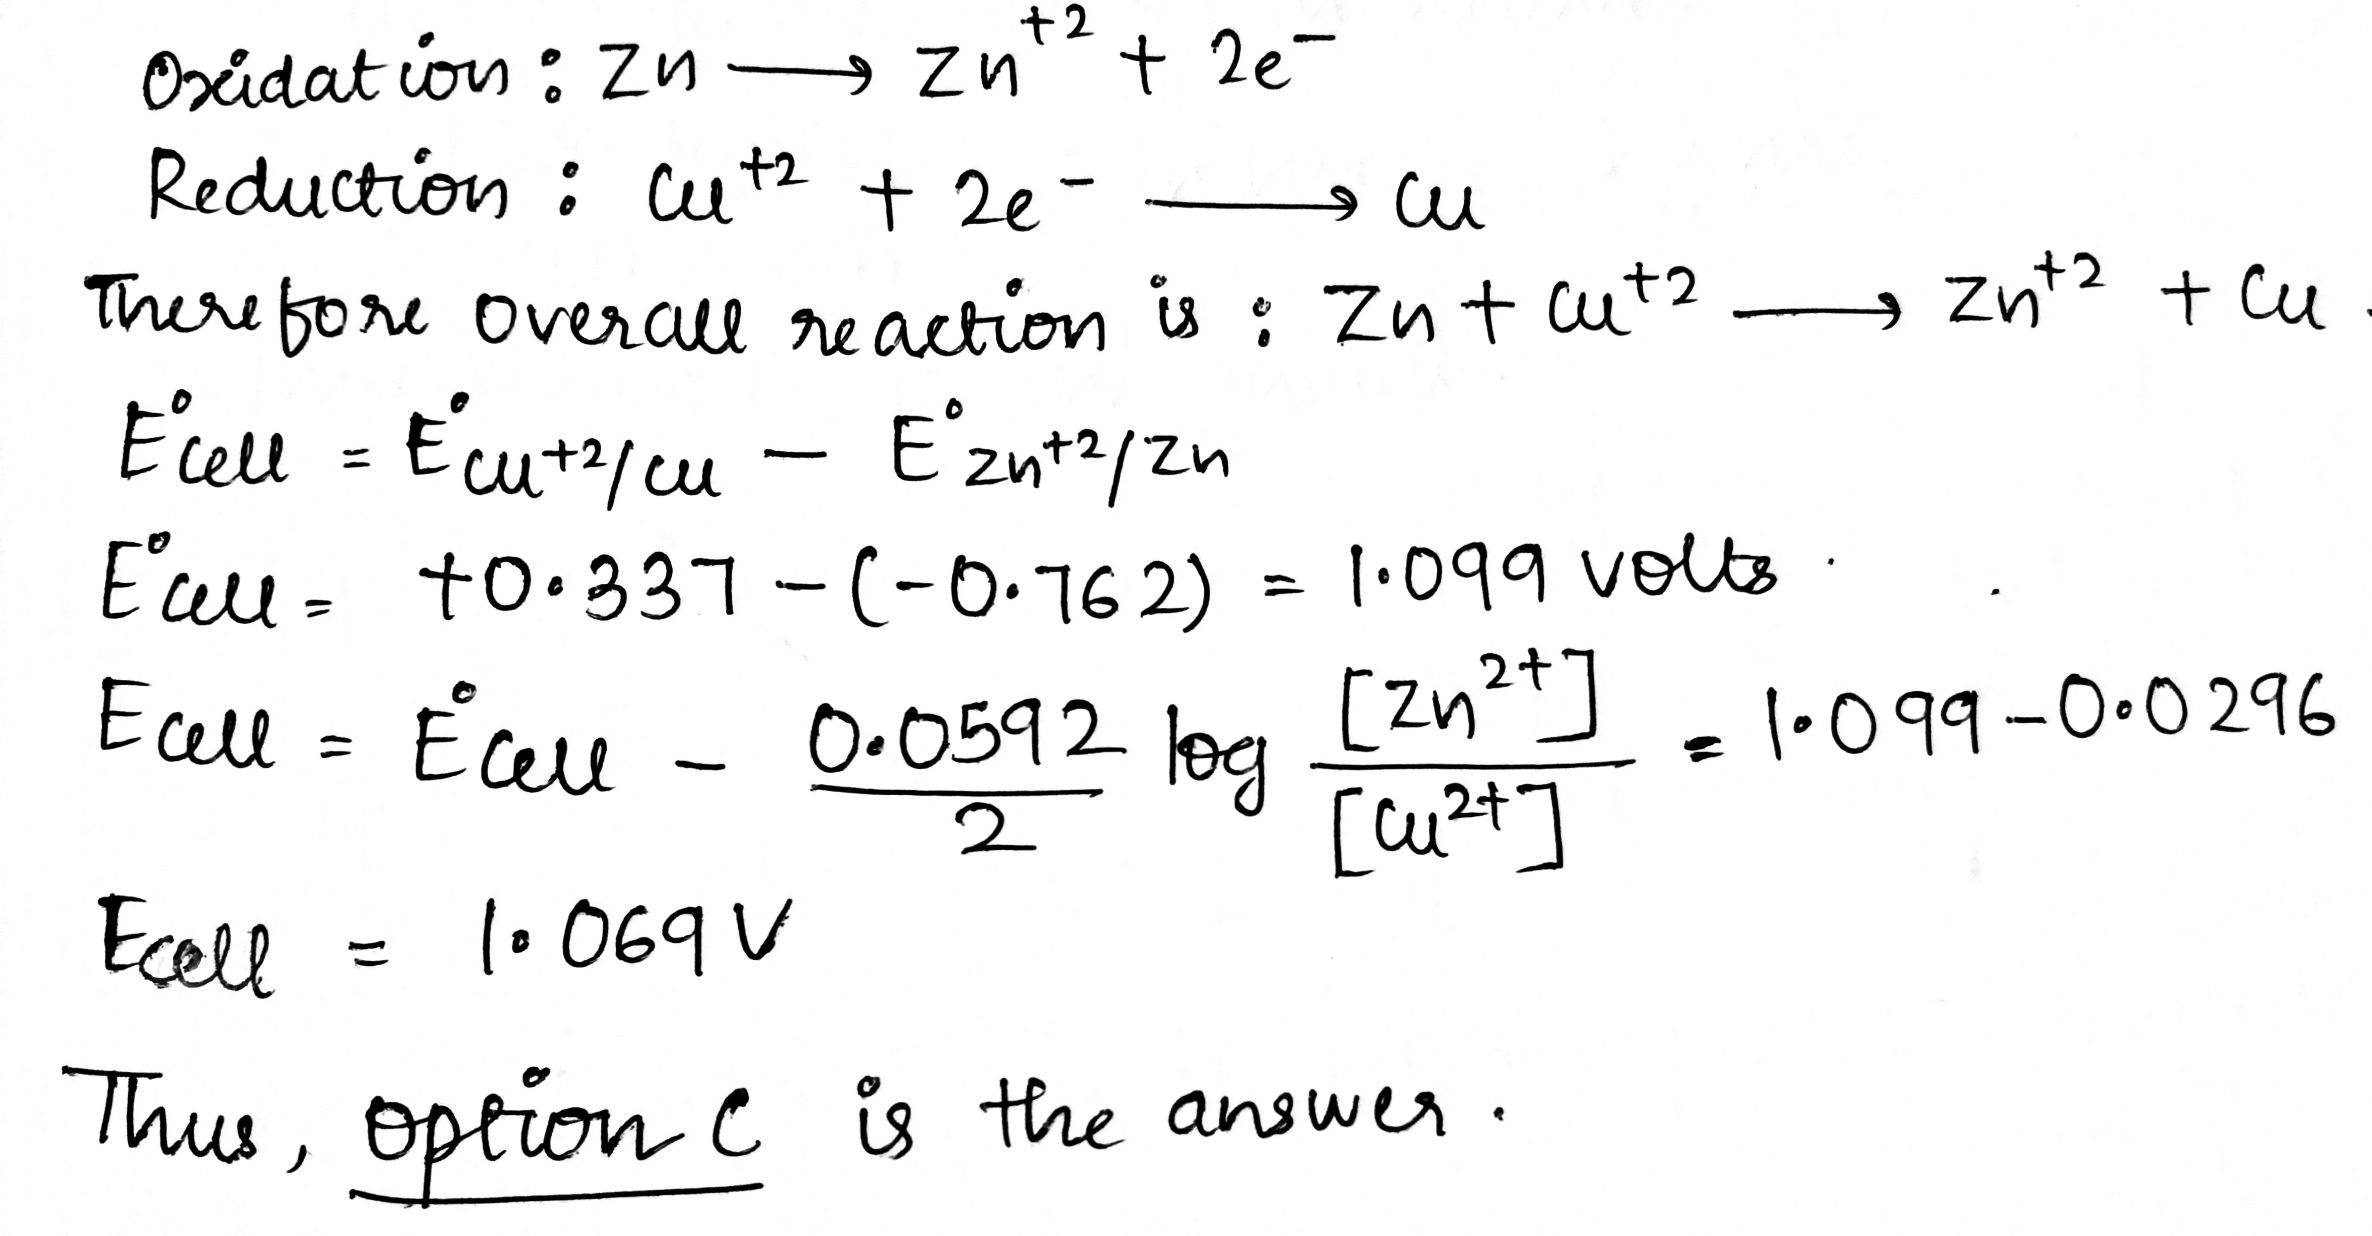 Oxidation : Zn ⟶ Zn⁺² + 2e⁻
Reduction : Cu⁺² + 2e⁻ ⟶ Cu
Therefore overall reaction is : Zn + Cu⁺² ⟶ Zn⁺² + Cu.
E°cell = E°Cu+2/Cu − E°Zn+2/Zn
E°cell = +0.337 − (−0.762) = 1.099 volts.
Ecell = E°cell − 0.0592/2 log [Zn²⁺]/[Cu²⁺] = 1.099 − 0.0296
Ecell = 1.069 V
Thus, option C is the answer.